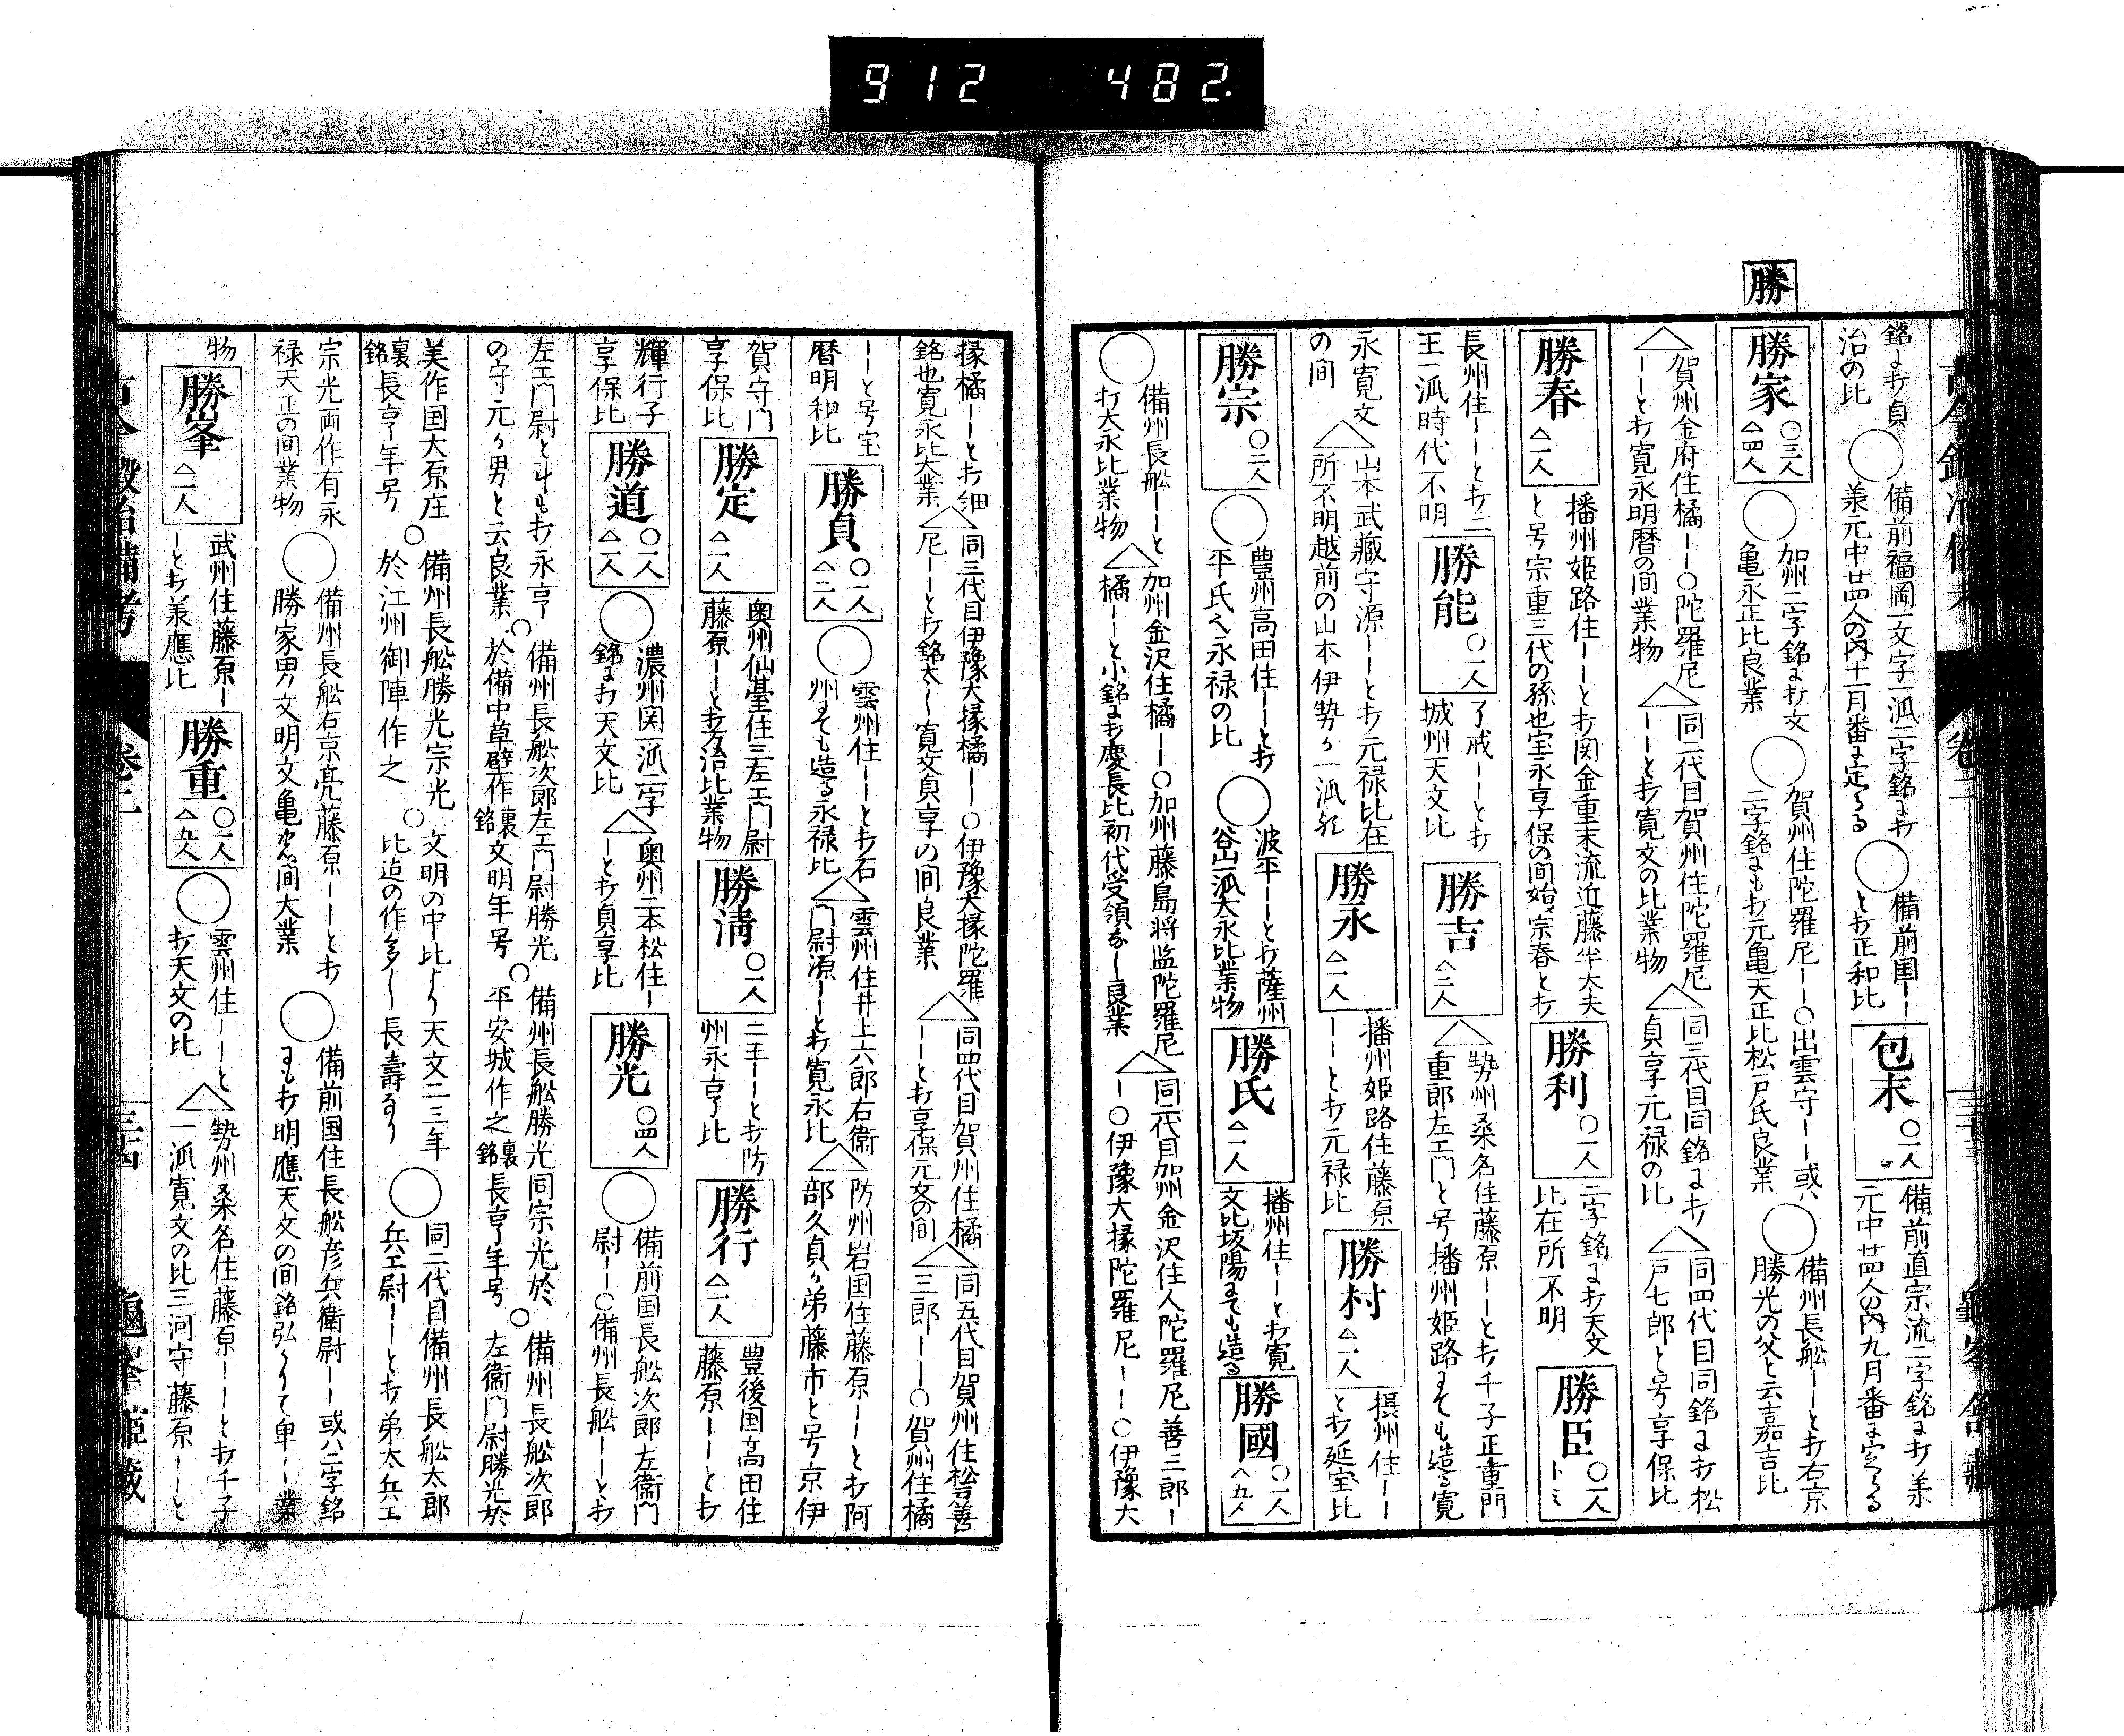 912 482.
勝
銘ニ打貞
治の比
○備前福岡一文字一派二字銘ニ打
兼元中廿四人の内十一月番ニ定る
○備前国一一
と打正和比
包末 ○一人
備前直宗流二字銘ニ打兼
元中廿四人の内九月番ニ定る
勝家 ○三人 △四人
○加州二字銘ニ打文
亀永正比良業
○賀州住陀羅尼一一○出雲守一一或ハ
二字銘にも打元亀天正比松戸氏良業
○備州長船一一と打右京
勝光の父と云嘉吉比
△賀州金府住橘一一○陀羅尼
一一と打寛永明暦の間業物
△同二代目賀州住陀羅尼
一一と打寛文の比業物
△同三代目同銘ニ打
貞享元禄の比
△同四代目同銘ニ打松
戸七郎と号享保比
勝春 △一人
播州姫路住一一と打関金重末流近藤半太夫
と号宗重三代の孫也宝永享保の間始メ宗春と打
勝利 ○一人
二字銘ニ打天文
比在所不明
勝臣 ○一人
長州住一一と打二
王一派時代不明
勝能 ○一人
了戒一一と打
城州天文比
勝吉 △二人
△勢州桑名住藤原一一と打千子正重門
重郎左エ門と号播州姫路にても造る寛
永寛文
の間
△山本武藏守源一一と打元禄比在
所不明越前の山本伊勢ゟ一派欤
勝永 △一人
播州姫路住藤原
一一と打元禄比
勝村 △一人
摂州住一一
と打延宝比
勝宗 ○二人
○豊州高田住一一と打
平氏也永禄の比
○波平一一と打薩州
谷山一派大永比業物
勝氏 △一人
播州住一一と打寛
文比坂陽にても造る
勝國 ○一人 △九人
○備州長船一一と
打大永比業物
△加州金沢住橘一一○加州藤島将监陀羅尼
橘一一と小銘ニ打慶長比初代受領なし良業
△同二代目加州金沢住人陀羅尼善三郎一
一○伊豫大掾陀羅尼一一○伊豫大
掾橘一一と打細
銘也寛永比大業
△同三代目伊豫大掾橘一一○伊豫大掾陀羅
尼一一と打銘太し寛文貞享の間良業
△同四代目賀州住橘
一一と打享保元文の間
△同五代目賀州住松戸善
三郎一一○賀州住橘
一一と号宝
暦明和比
勝貞 ○一人 △二人
○雲州住一一と打石
州にても造る永禄比
△雲州住井上六郎右衛
門尉源一一と打寛永比
△防州岩国住藤原一一と打阿
部久貞ゟ弟藤市と号京伊
賀守門
享保比
勝定 △一人
奥州仙臺住三左エ門尉
藤原一一と打万治比業物
勝清 ○一人
二王一一と打防
州永享比
勝行 △一人
豊後国高田住
藤原一一と打
輝行子
享保比
勝道 ○一人 △一人
○濃州関一派二字
銘ニ打天文比
△奥州二本松住一
一と打貞享比
勝光 ○四人
○備前国長船次郎左衛門
尉一一○備州長船一一と打
左エ門尉と斗も打永享
の守元ゟ男と云良業
○備州長船次郎左エ門尉勝光
於備中草壁作 裏銘 文明年号
○備州長船勝光同宗光於
平安城作之 裏銘 長享年号
○備州長船次郎
左衛門尉勝光於
美作国大原庄
裏銘 長享年号
○備州長船勝光宗光
於江州御陣作之
○文明の中比より天文二三年
比迄の作多し長壽なり
○同二代目備州長船太郎
兵エ尉一一と打弟太兵エ
宗光両作有永
禄天正の間業物
○備州長船右京亮藤原一一と打
勝家男文明文亀の間大業
○備前国住長船彦兵衛尉一一或ハ二字銘
にも打明應天文の間銘弘くして卑し業
物
勝峯 △一人
武州住藤原一
一と打兼應比
勝重 ○一人 △九人
○雲州住一一と
打天文の比
△勢州桑名住藤原一一と打千子
一派寛文の比三河守藤原一一と
古今鍛冶備考 卷三 三十四 龜峯館藏